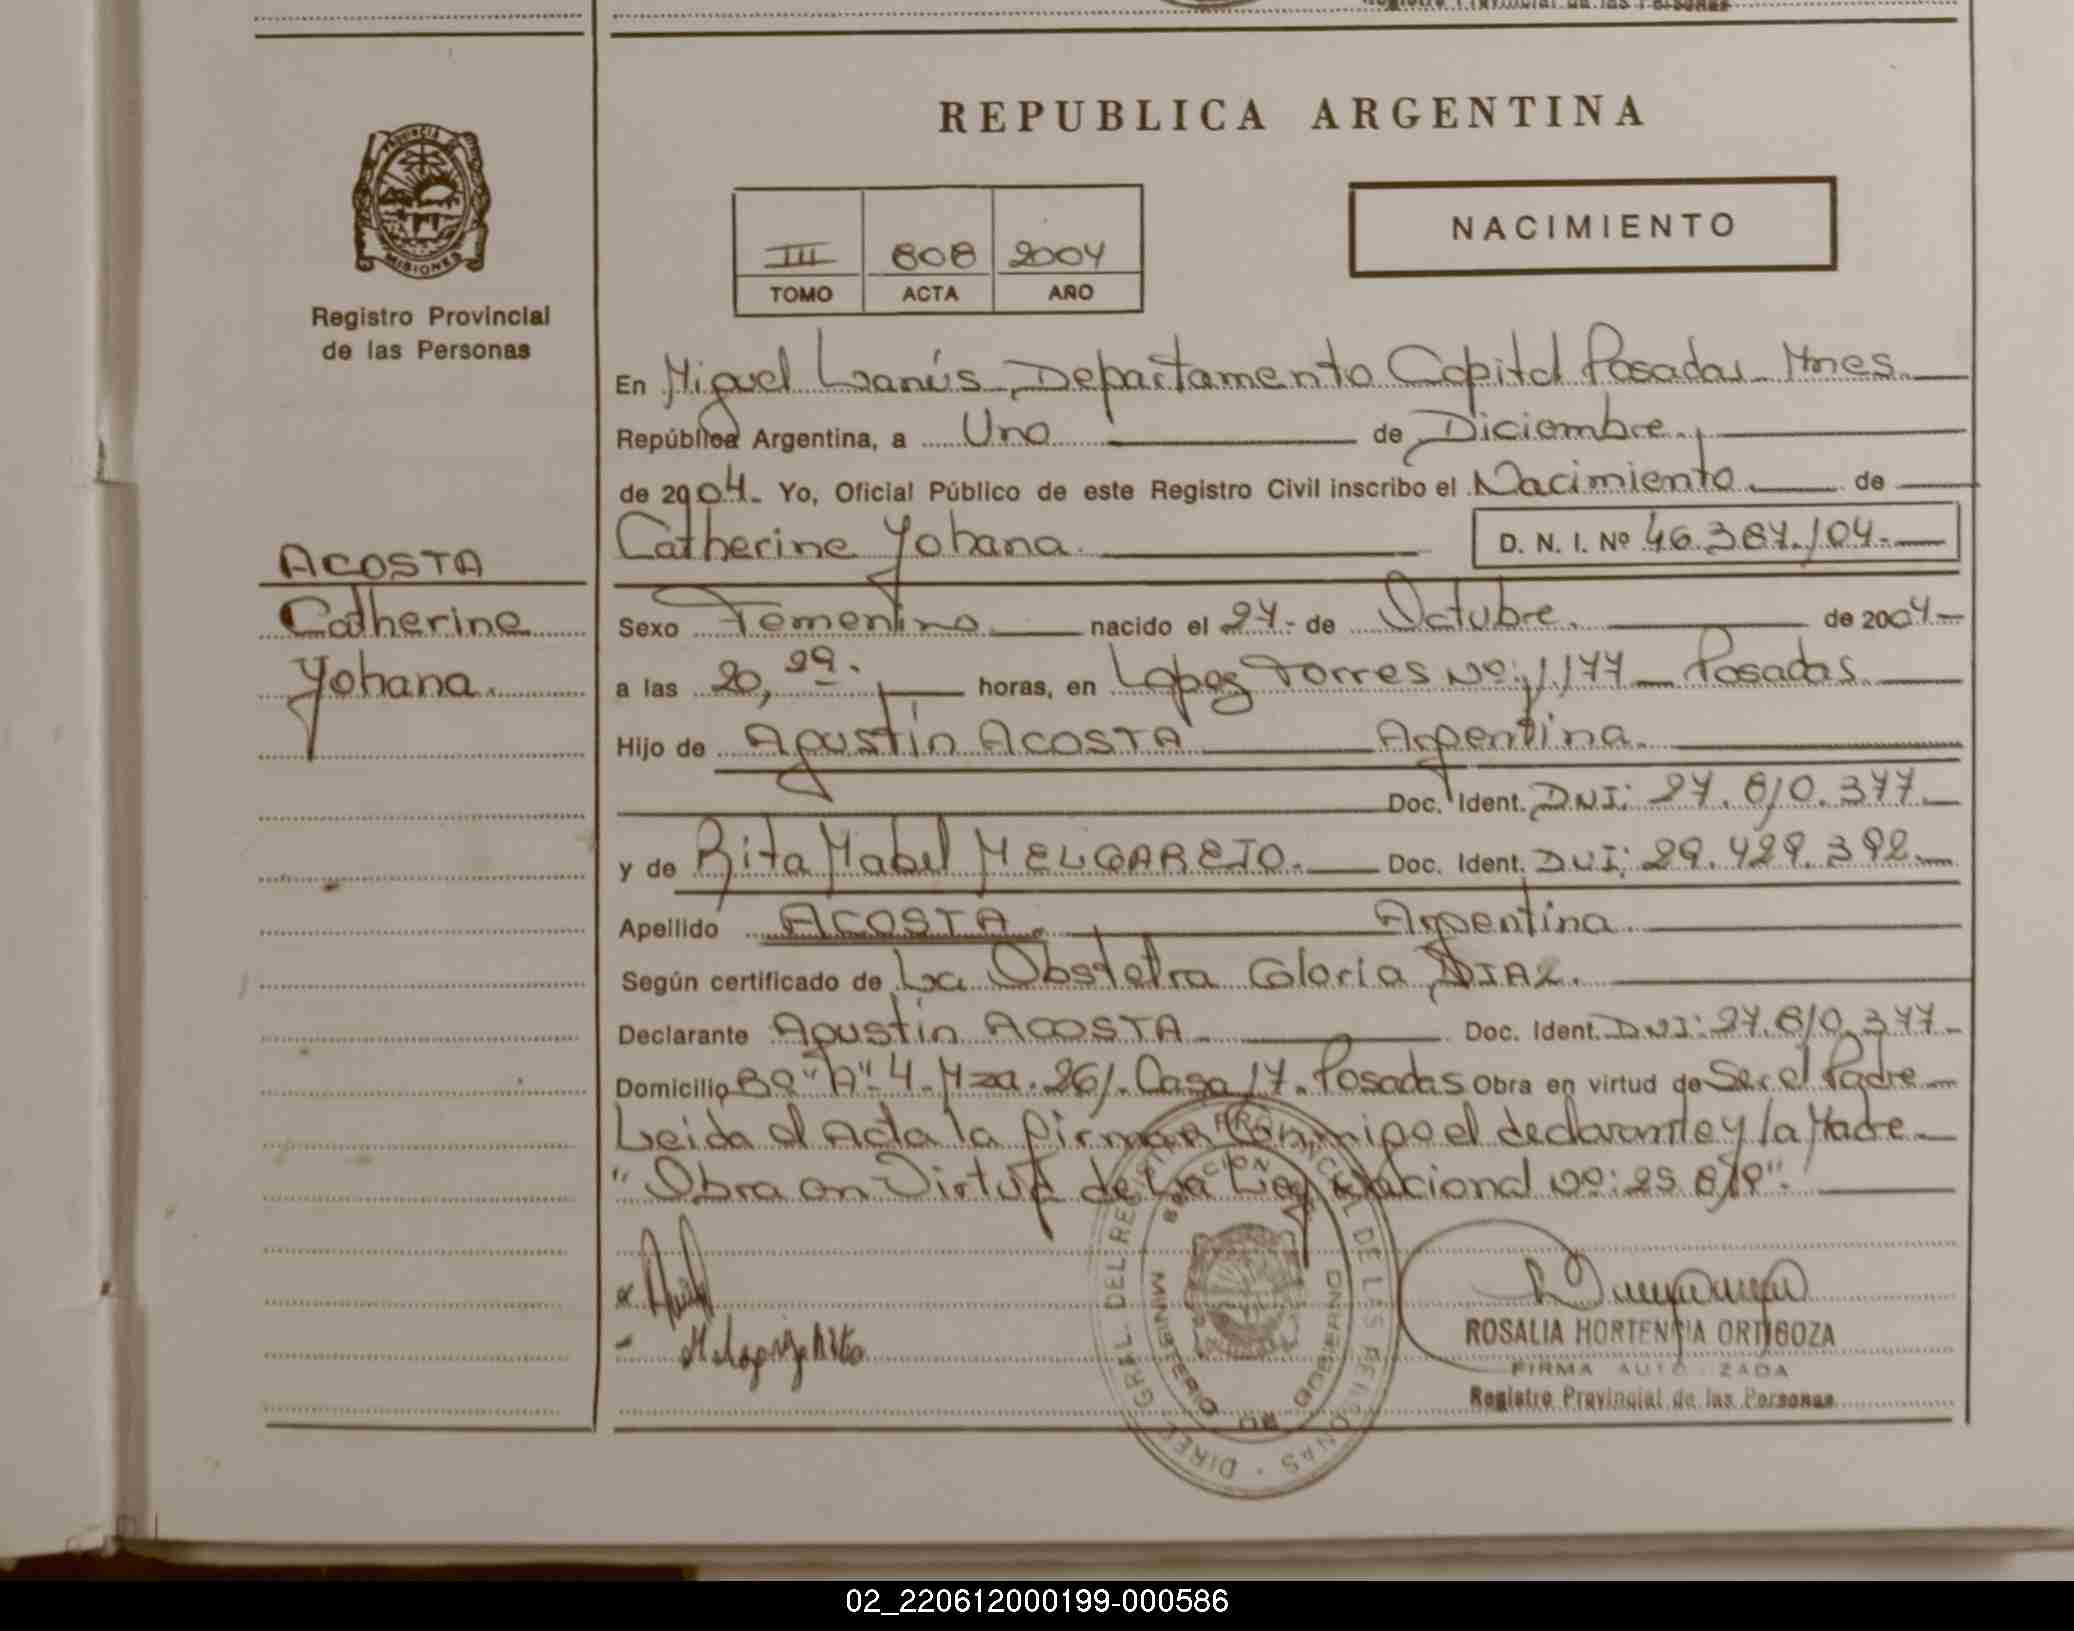 Registro Provincial de las Personas
REPUBLICA ARGENTINA
PROVINCIA DE
MISIONES
Registro Provincial
de las Personas
III 808 2004
TOMO ACTA AÑO
NACIMIENTO
En Miguel Lanús, Departamento Capital Posadas Mnes.
República Argentina, a Uno de Diciembre.
de 2004. Yo, Oficial Público de este Registro Civil inscribo el Nacimiento de
ACOSTA
Catherine
Yohana.
Catherine Yohana.
D. N. I. Nº 46.387.104.
Sexo Femenino nacido el 27. de Octubre. de 2004
a las 20,29. horas, en Lopez Torres Nº: 1177 Posadas.
Hijo de Agustín ACOSTA Argentina.
Doc. Ident. DNI: 27.810.377.
y de Rita Mabel MELGAREJO. Doc. Ident. DNI: 29.429.392.
Apellido ACOSTA. Argentina
Según certificado de La Obstetra Gloria DIAZ.
Declarante Agustín ACOSTA Doc. Ident. DNI: 27.810.377
Domicilio Bº "A" 4. Mza. 261. Casa 17. Posadas Obra en virtud de Ser el Padre
Leida el Acta la firman Conmigo el declarante y la Madre
"Obra en Virtud de La Ley Nacional Nº: 25.819".
DIREC. GRAL. DEL REGIST. PROVINCIAL DE LAS PERSONAS
MINISTERIO DE GOBIERNO
ROSALIA HORTENCIA ORTIGOZA
FIRMA AUTORIZADA
Registro Provincial de las Personas
02_220612000199-000586